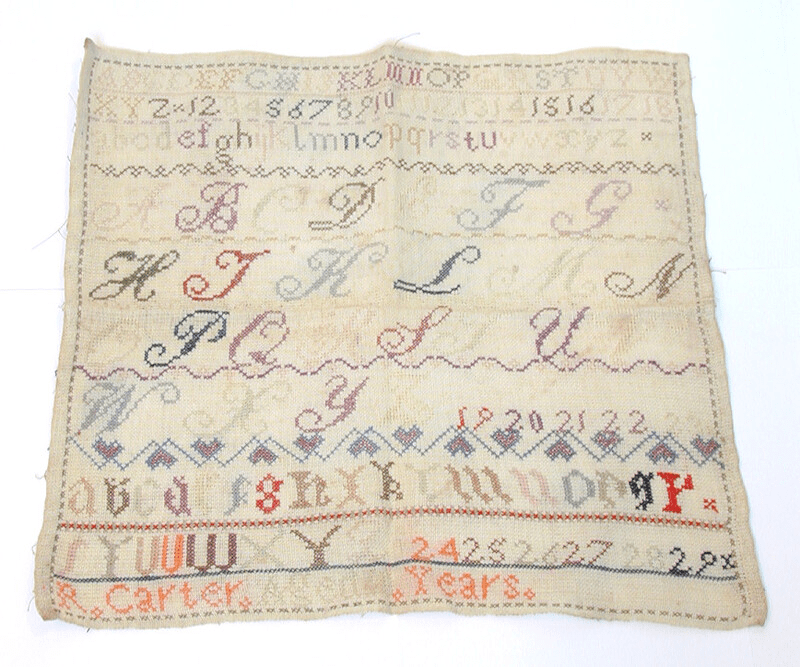 A B C D E F G H I J K L M N O P Q R S T U V W
X Y Z × 1 2 3 4 5 6 7 8 9 10 11 12 13 14 15 16 17 18
a b c d e f g h i j k l m n o p q r s t u v w x y z ×
A B C D E F G ×
H I K L M N
O P Q R S T U V
W X Y Z 19 20 21 22 23
a b c d e f g h i k l m n o p q r ×
s t u w x y z 24 25 26 27 28 29 ×
R. Carter. Aged . Years.